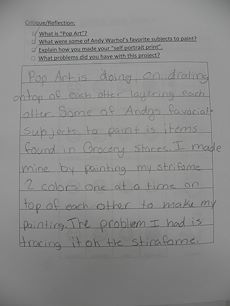 Critique/Reflection:
What is "Pop Art"?
What were some of Andy Warhol's favorite subjects to paint?
Explain how you made your "self portrait print".
What problems did you have with this project?
Pop Art is doing on drating
on top of each other layering each
other Some of Andys favarait
subjects to paint is items
found in Grocery stores. I made
mine by painting my strifome
2 colors one at a time on
top of each other to make my
painting. The problem I had is
tracing it oh the strafome.